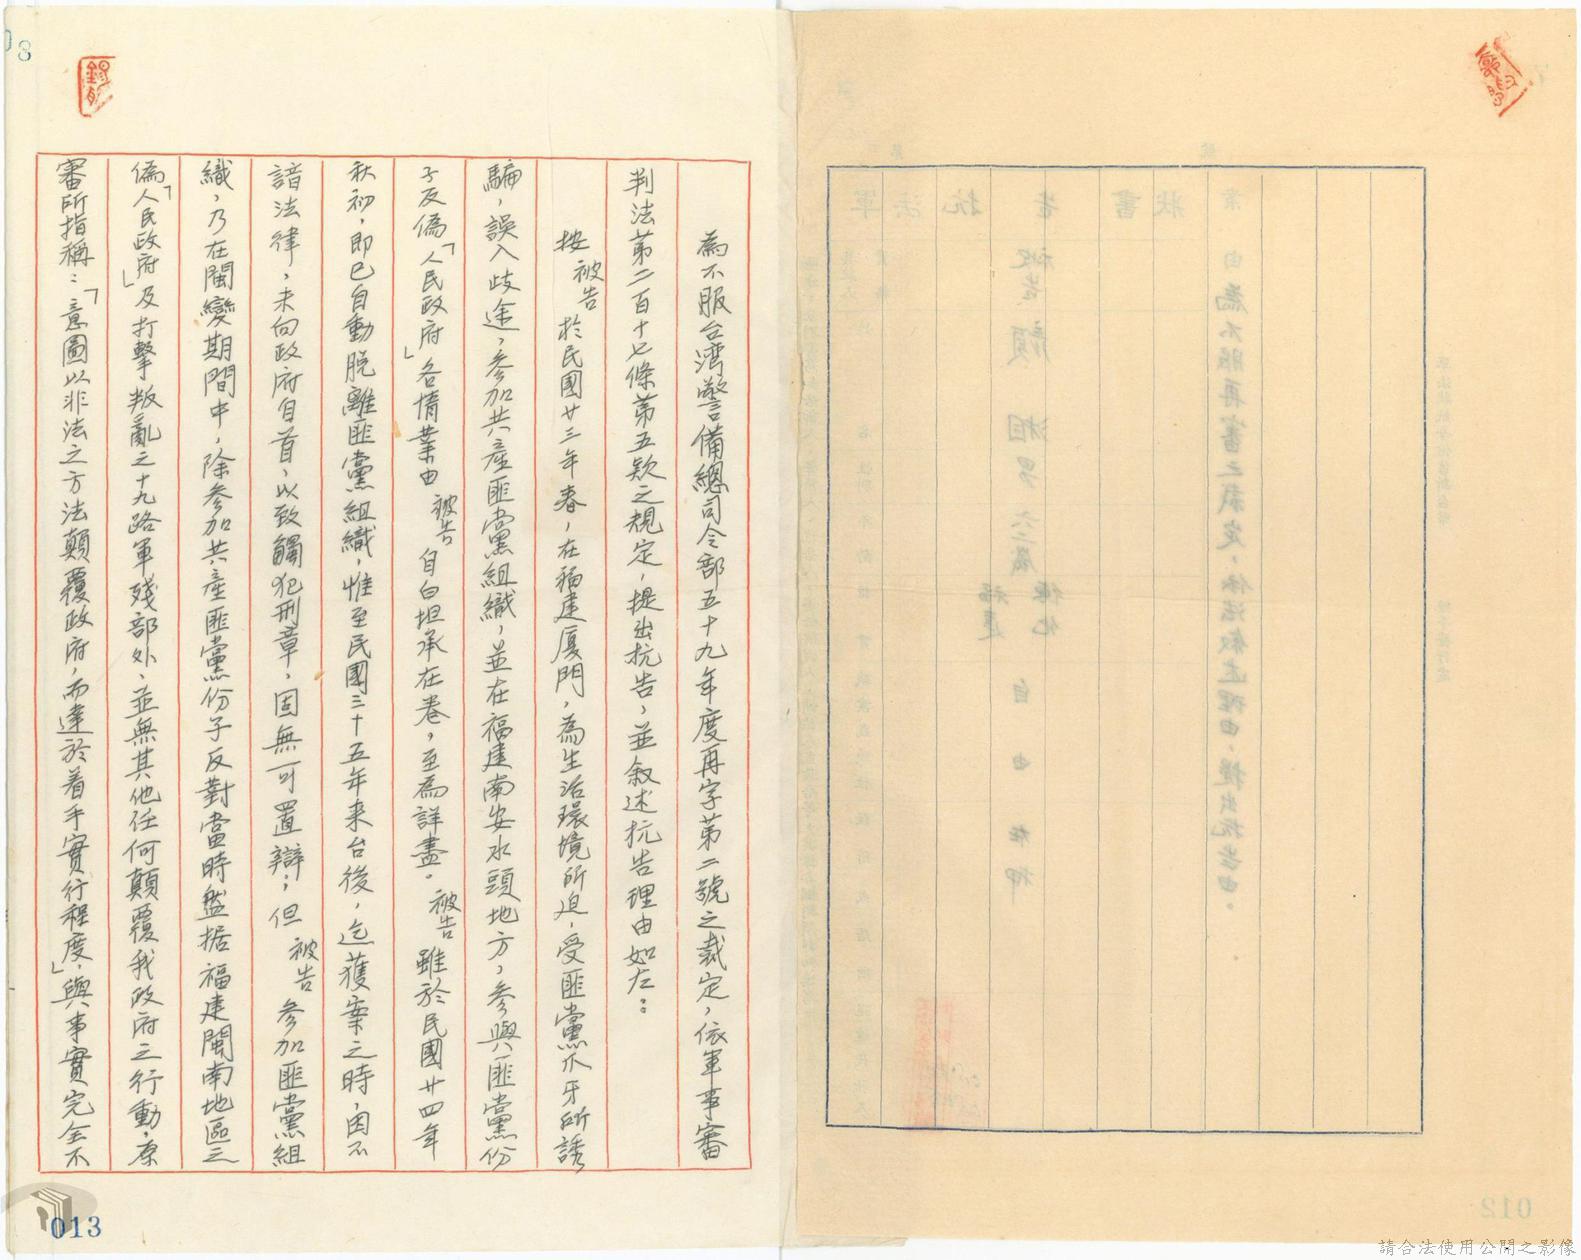 為不服台灣警備總司令部五十九年度再字第二號之裁定，依軍事審
判法第二百十七條第五款之規定，提出抗告，並敘述抗告理由如左：
按被告於民國廿三年春，在福建廈門，為生活環境所迫，受匪黨爪牙所誘
騙，誤入歧途，參加共產匪黨組織，並在福建南安水頭地方，參與匪黨份
子反僞「人民政府」各情業由被告自白坦承在卷，至為詳盡。被告雖於民國廿四年
秋初，即已自動脫離匪黨組織，惟至民國三十五年來台後，迄獲案之時，因不
諳法律，未向政府自首，以致觸犯刑章，固無可置辯；但被告參加匪黨組
織，乃在閩變期間中，除參加共產匪黨份子反對當時盤据福建閩南地區之
僞「人民政府」及打擊叛亂之十九路軍殘部外，並無其他任何顛覆我政府之行動，原
審所指稱：「意圖以非法之方法顛覆政府，而達於着手實行程度」，與事實完全不
013
請合法使用公開之影像